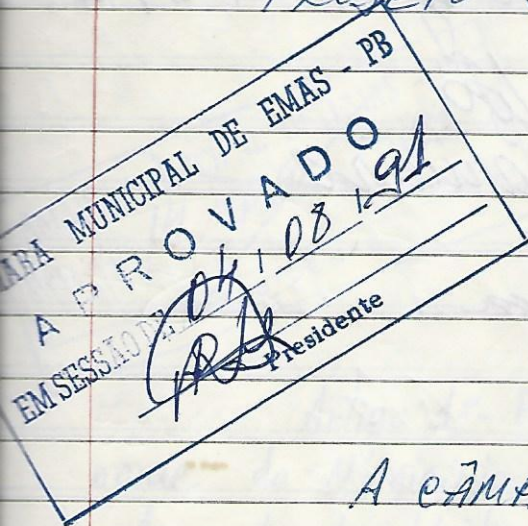 ARA MUNICIPAL DE EMAS - PB
APROVADO
EM SESSÃO DE 04 / 08 / 91
Presidente
A CÂMA